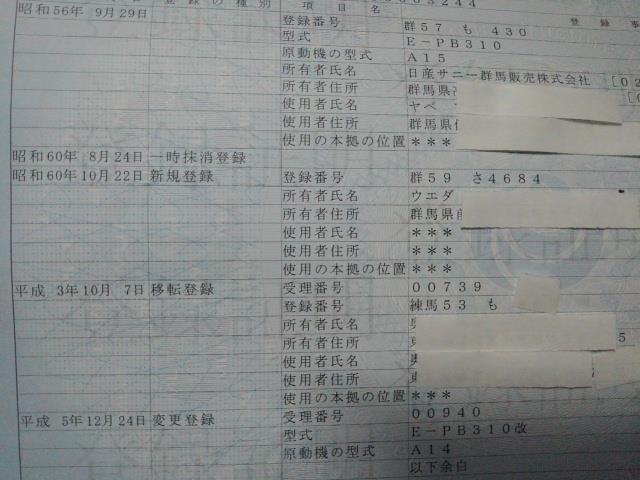 登録の種別 項目名
昭和56年 9月29日 登録番号 群57 も 430 登録事
型式 E-PB310
原動機の型式 A15
所有者氏名 日産サニー群馬販売株式会社 [02
所有者住所 群馬県
使用者氏名 ヤベ
使用者住所 群馬県
使用の本拠の位置 ***
昭和60年 8月24日 一時抹消登録
昭和60年10月22日 新規登録 登録番号 群59 さ4684
所有者氏名 ウエダ
所有者住所 群馬県前
使用者氏名 ***
使用者住所 ***
使用の本拠の位置 ***
平成 3年10月 7日 移転登録 受理番号 00739
登録番号 練馬53 も
所有者氏名
所有者住所 5
使用者氏名
使用者住所
使用の本拠の位置 ***
平成 5年12月24日 変更登録 受理番号 00940
型式 E-PB310改
原動機の型式 A14
以下余白